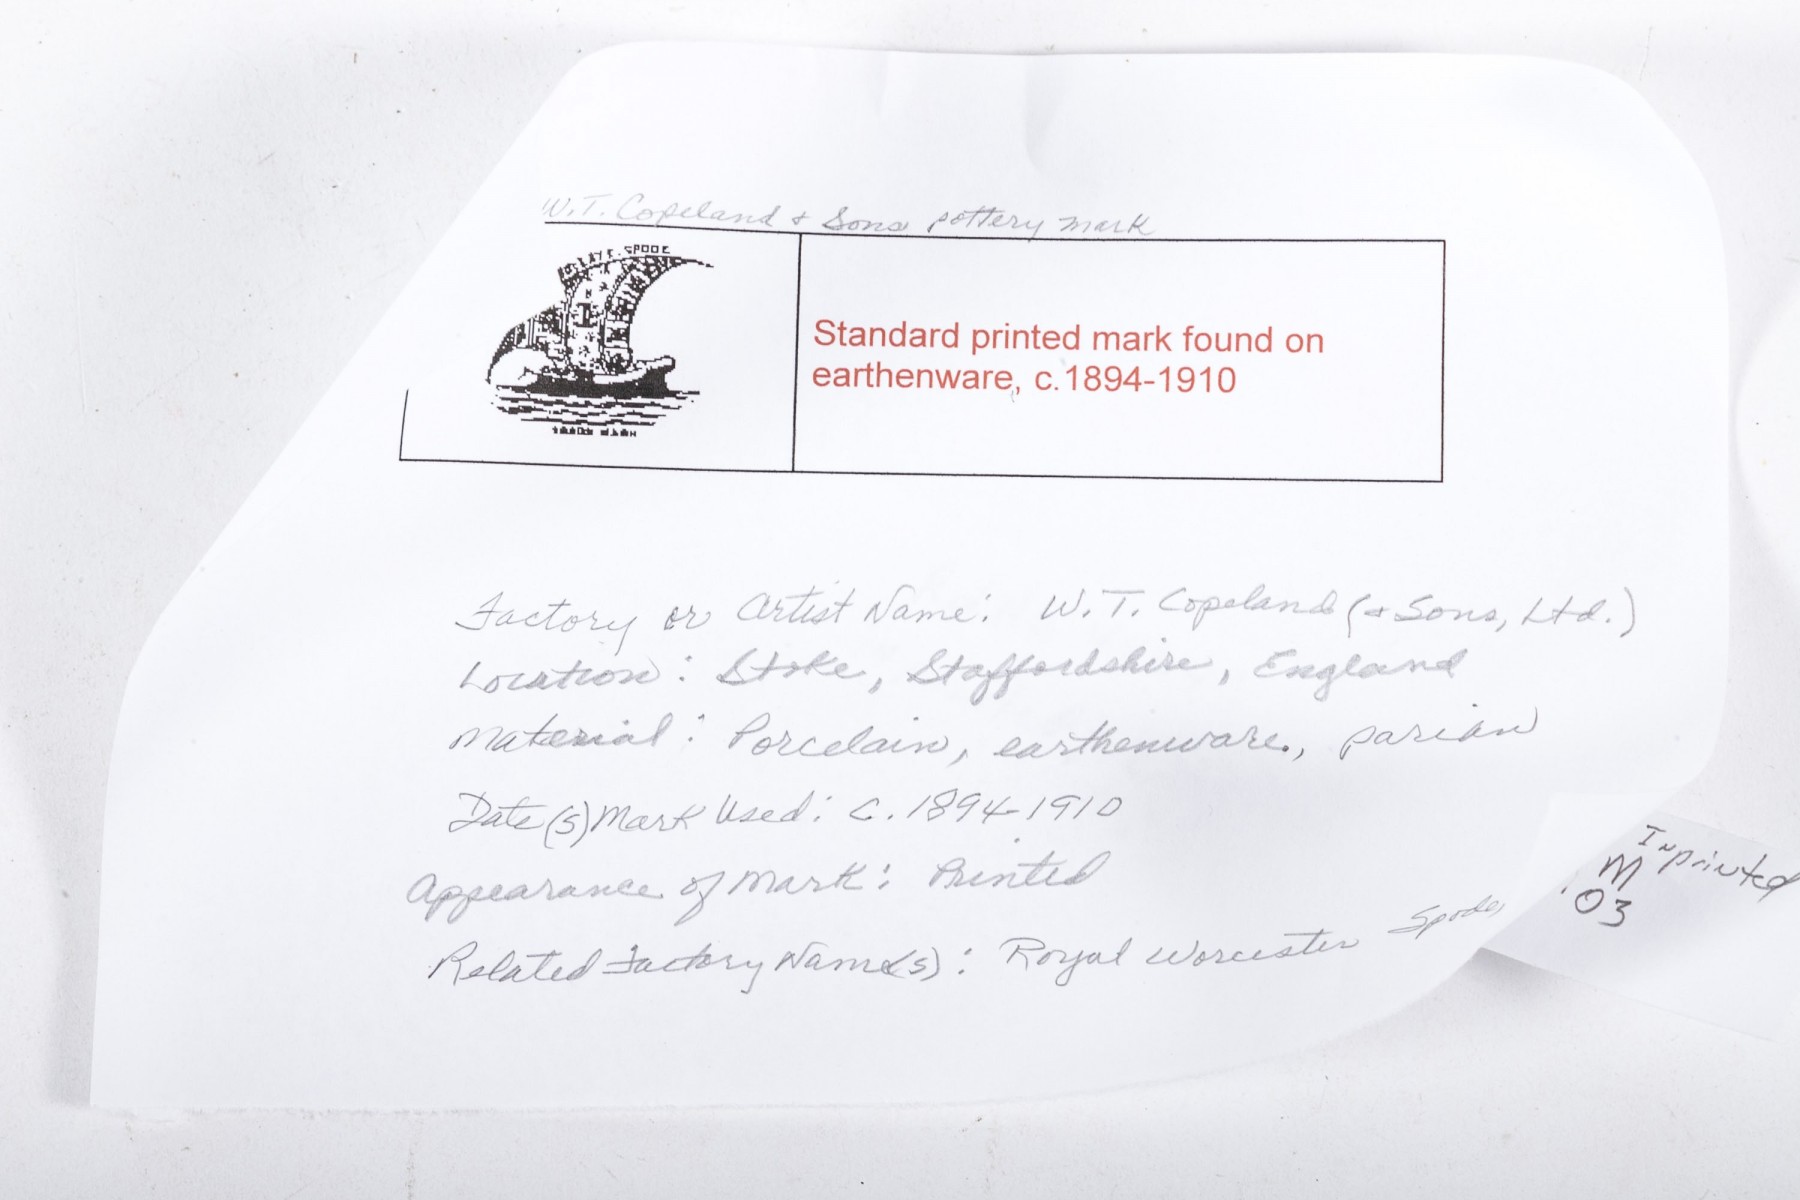 W.T. Copeland & Sons pottery mark
SPODE
Standard printed mark found on
earthenware, c.1894-1910
Factory or Artist Name: W.T. Copeland (& Sons, Ltd.)
Location: Stoke, Staffordshire, England
Material: Porcelain, earthenware, parian
Date(s) Mark Used: c. 1894-1910
Appearance of Mark: Printed
Related Factory Name(s): Royal Worcester Spode,
Inprinted
M
03